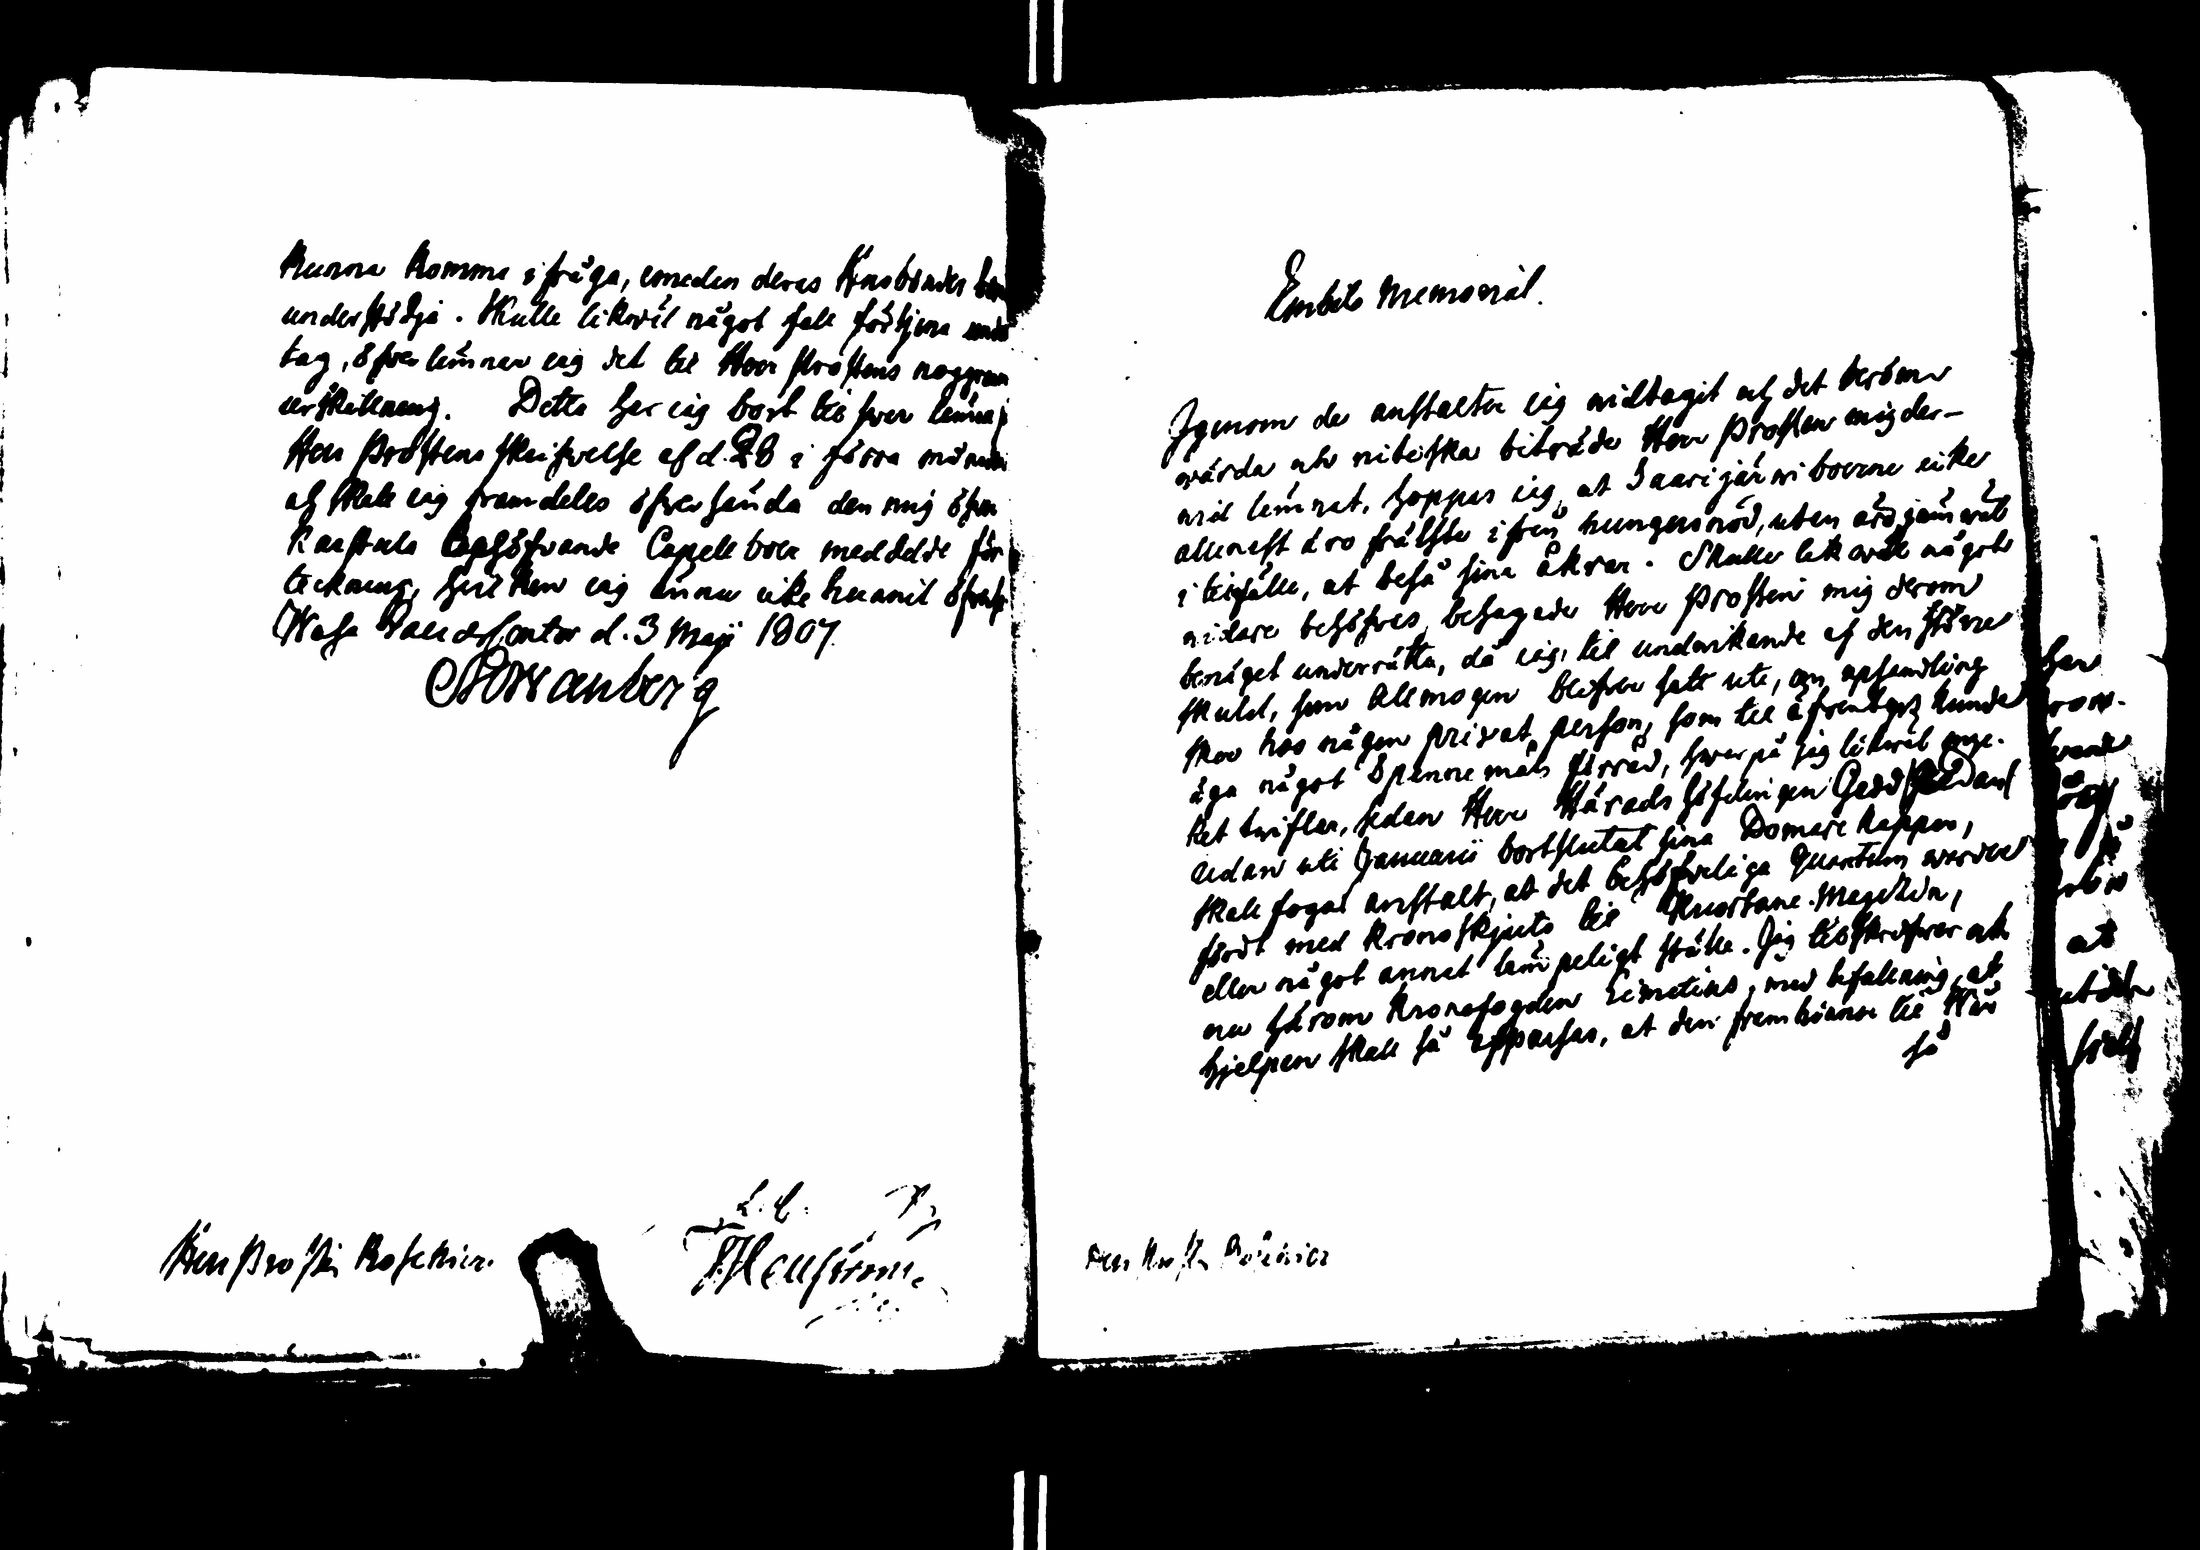 kunna komma i fråga, emedan deras Husbönder
understödja. Skulle likväl något fall förtjena
tag, öfverlämnar jag det til Herr Prostens noggran
urskillning. Detta har jag bort til svar lämna
Herr Prostens skrifvelse af d. 28 i förra månad
och skall jag framdeles öfversända den mig
Karstula Capellboer meddelde för
teckning, hvilken jag ännu icke hunnit
Wasa Lands Contor d. 3 Maji 1807.
Wanberg
Herr Prosten Roschier.
L. C.
Embets Memorial.
Igenom de anstalter jag vidtagit och det beröm-
värda och nitiska biträde Herr Prosten mig der-
vid lämnat, hoppas jag, at Saarijärvi boerne icke
allenast äro frälste ifrån hungersnöd, utan äro jämväl
i tilfälle, at beså sina åkrar. Skulle likväl något
vidare behöfvas, behagade Herr Prosten mig derom
benäget underrätta, då jag, til undvikande af den större
skuld, som Allmogen blefve satt uti, om uphandling
sker hos någon privat person, som til äfventyrs kunde
äga något Spannemåls förråd, hvarpå jag likväl myc-
ket tviflar, sedan Herr Häradshöfdingen
redan uti Januarii bortslutat sina Domare kappar,
skall foga anstalt, at det behöfveliga Quantum varder
fördt med kronoskjuts til Kuortane Magazin,
eller något annat lämpeligt ställe. Jag tilskrifver ock
nu härom Kronofogden Limatius, med befallning, at
hjelpen skall så afpassas, at den
så
Herr Prosten Roschier
at